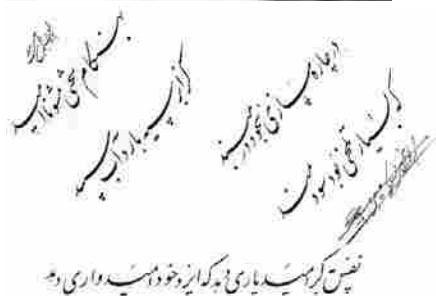 بهنگام سختی مشو ناامید
کز ابر سیه بارد آب سپید
در چاره سازی بخود در مبند
که بسیار تلخی بود سودمند
نفس به کز امید یاری دهد که ایزد خود امیدواری دهد